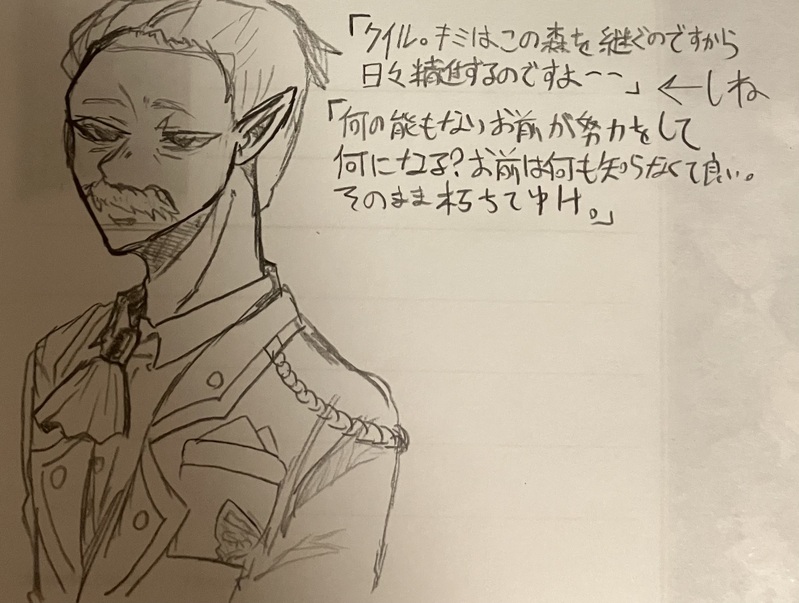 「クイル。キミはこの森を継ぐのですから
日々精進するのですよーー」←しね
「何の能もないお前が努力をして
何になる?お前は何も知らなくて良い。
そのまま朽ちてゆけ。」